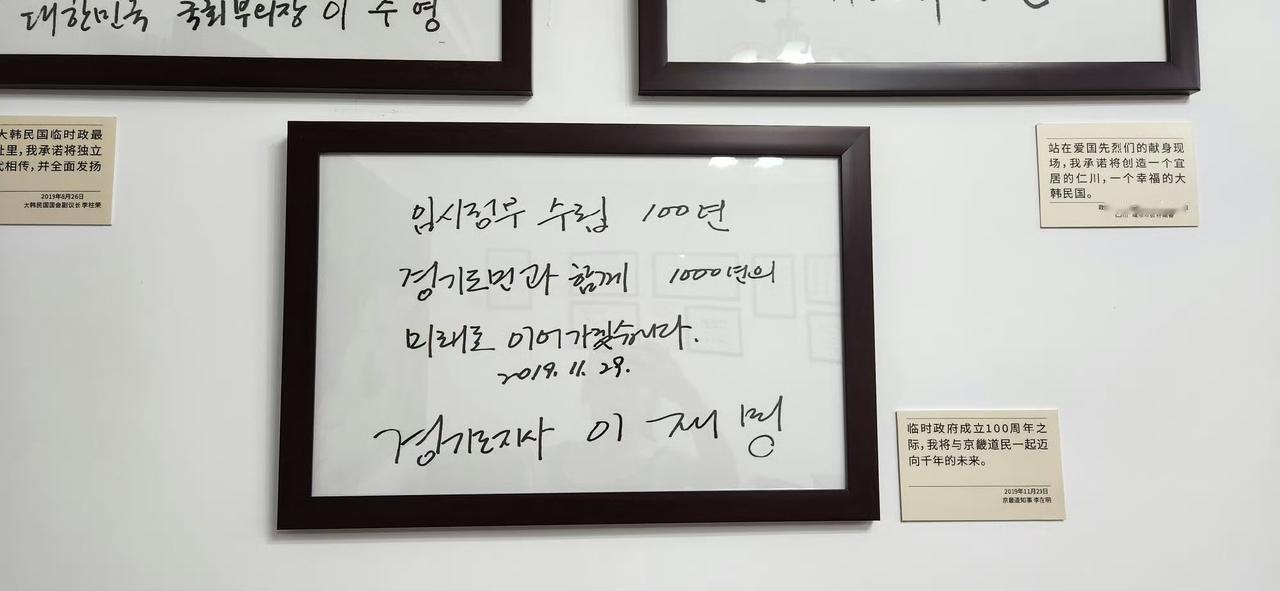 대한민국 국회부의장 이 주 영
大韩民国临时政最
址里，我承诺将独立
代相传，并全面发扬
2019年8月26日
大韩民国国会副议长 李柱荣
站在爱国先烈们的献身现
场，我承诺将创造一个宜
居的仁川，一个幸福的大
韩民国。
임시정부 수립 100년
경기도민과 함께 1000년의
미래로 이어가겠습니다.
2019. 11. 29.
경기도지사 이 재 명
临时政府成立100周年之
际，我将与京畿道民一起迈
向千年的未来。
2019年11月29日
京畿道知事 李在明